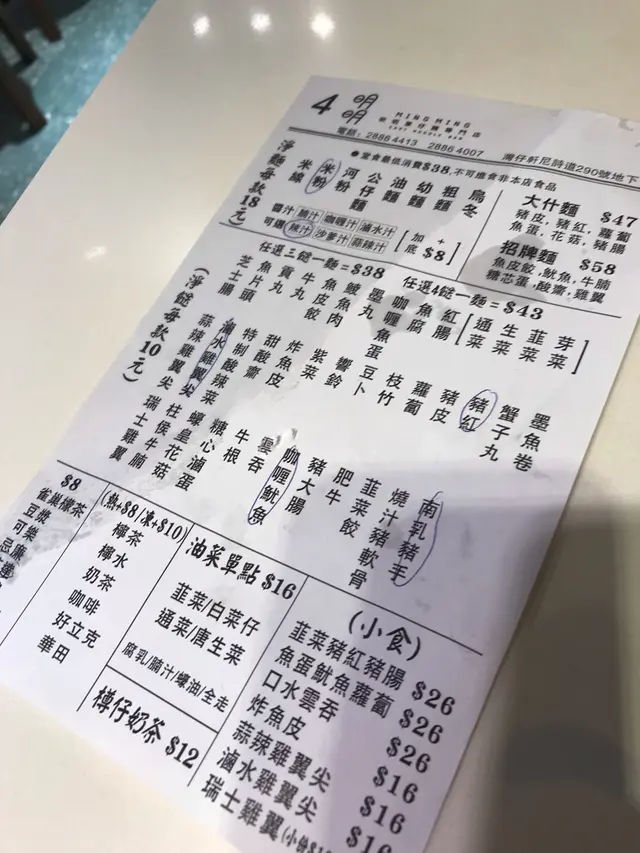 4
明明
MING MING
明明車仔麵專門店
CART NOODLE BAR
電話：2886 4413 2886 4007
灣仔軒尼詩道290號地下
●堂食最低消費$38，不可進食非本店食品
淨麵每款18元
米線
米粉
河粉
公仔麵
油麵
幼麵
粗麵
烏冬
醬汁
可選
腩汁
咖喱汁
滷水汁
辣汁
沙爹汁
蒜辣汁
[加底 + $8]
大什麵 $47
豬皮，豬紅，蘿蔔
魚蛋，花菇，豬腸
招牌麵 $58
魚皮餃，魷魚，牛腩
糖芯蛋，酸齋，雞翼
任選三餸一麵=$38
任選4餸一麵=$43
(淨餸每款10元)
芝士腸
魚片頭
貢丸
牛丸
魚皮餃
鯪魚肉
墨魚丸
咖喱魚蛋
魚腐
紅腸
通菜
生菜
韮菜
芽菜
蒜辣雞翼尖
滷水雞翼尖
特制酸辣菜
甜酸齋
炸魚皮
紫菜
響鈴
豆卜
枝竹
蘿蔔
豬皮
豬紅
蟹子丸
墨魚卷
瑞士雞翼
柱侯牛腩
蠔皇花菇
糖心滷蛋
牛根
雲吞
咖喱魷魚
豬大腸
肥牛
韮菜餃
燒汁豬軟骨
南乳豬手
$8
豆漿
可樂
忌廉
(熱+$8/凍+$10)
檸茶
檸水
奶茶
咖啡
好立克
華田
油菜單點 $16
韮菜/白菜仔
通菜/唐生菜
腐乳/腩汁/蠔油/全走
樽仔奶茶 $12
(小食)
韮菜豬紅豬腸 $26
魚蛋魷魚蘿蔔 $26
口水雲吞 $26
炸魚皮 $16
蒜辣雞翼尖 $16
滷水雞翼尖 $16
瑞士雞翼